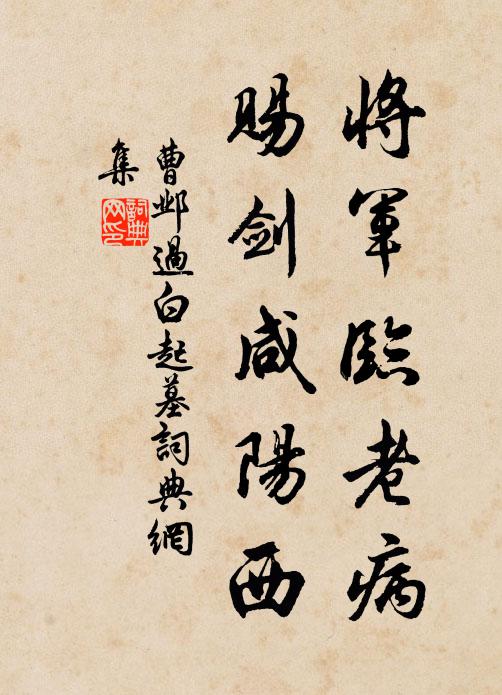 將軍臨老病
賜劍咸陽西
曹鄴過白起墓詞典網
集
詞典
网印